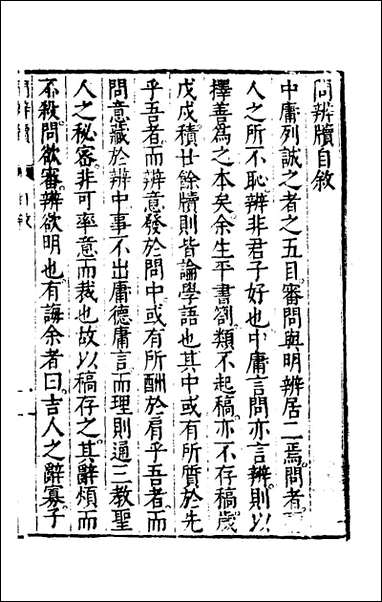 問辨牘自敘
中庸列誠之者之五目審問與明辨居二焉問者
人之所不恥辨非君子好也中庸言問亦言辨則以
擇善為之本矣余生平書劄類不起稿亦不存稿歲
戊戌積廿餘牘則皆論學語也其中或有所質於先
乎吾者而辨意發於問中或有所酬於肩乎吾者而
問意藏於辨中事不出庸德庸言而理則通三教聖
人之秘密非可率意而裁也故以稿存之其辭煩而
不殺問欲審辨欲明也有誨余者曰吉人之辭寡子